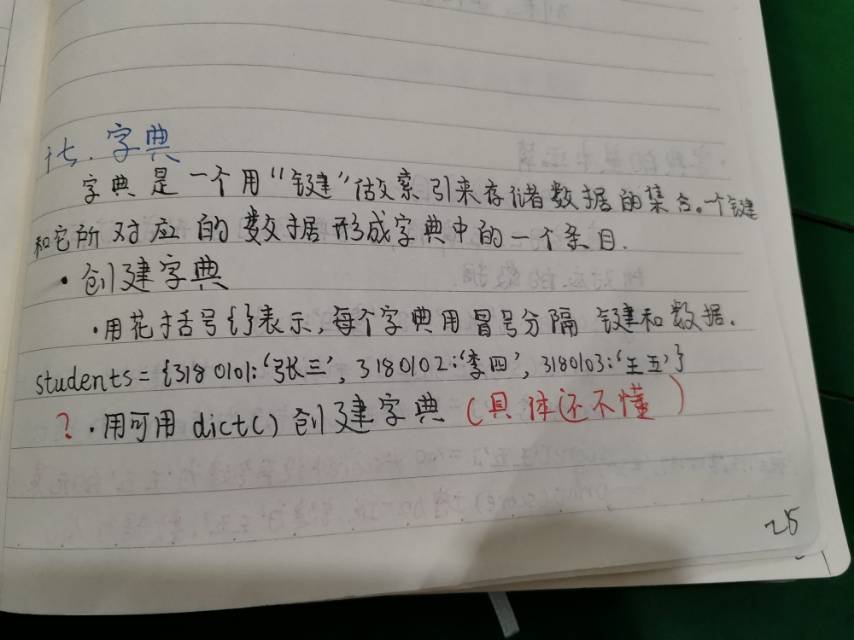 十七. 字典
字典是一个用“键”做索引来存储数据的集合。一个键
和它所对应的数据形成字典中的一个条目.
·创建字典
·用花括号{}表示,每个字典用冒号分隔 键和数据.
students={3180101:‘张三’, 3180102:‘李四’, 3180103:‘王五’}
?·用可用 dict() 创建字典 (具体还不懂)
25